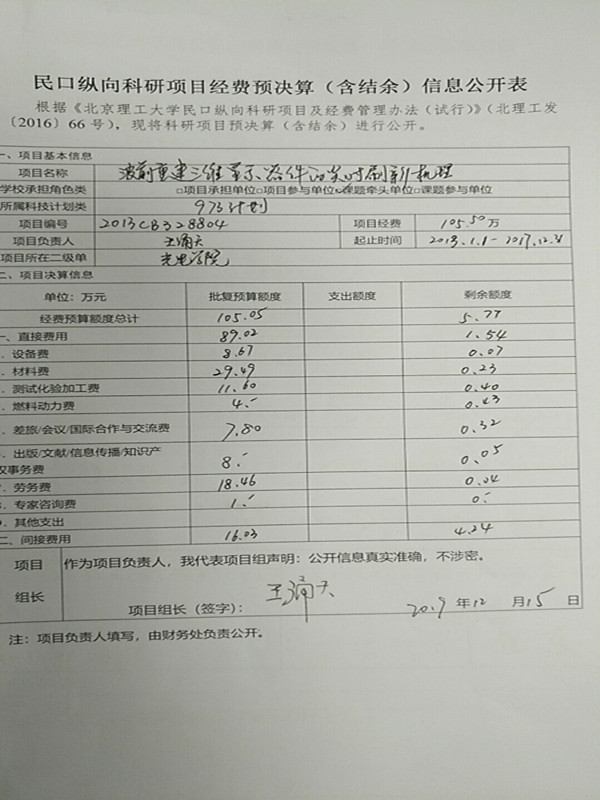 民口纵向科研项目经费预决算（含结余）信息公开表
根据《北京理工大学民口纵向科研项目及经费管理办法（试行）》（北理工发
〔2016〕66号），现将科研项目预决算（含结余）进行公开。
一、项目基本信息
项目名称 波前重建三维显示器件的实时刷新机理
学校承担角色类 □项目承担单位□项目参与单位☑课题牵头单位□课题参与单位
所属科技计划类 973计划
项目编号 2013CB328804 项目经费 105.50万
项目负责人 王涌天 起止时间 2013.1.1-2017.12.31
项目所在二级单 光电学院
二、项目决算信息
单位：万元 批复预算额度 支出额度 剩余额度
经费预算额度总计 105.05 5.77
一、直接费用 89.02 1.54
．设备费 8.67 0.07
．材料费 29.49 0.23
．测试化验加工费 11.60 0.40
．燃料动力费 4.- 0.43
．差旅/会议/国际合作与交流费 7.80 0.32
．出版/文献/信息传播/知识产
权事务费 8.- 0.05
．劳务费 18.46 0.04
．专家咨询费 1.- 0.-
．其他支出
二、间接费用 16.03 4.24
项目
组长
作为项目负责人，我代表项目组声明：公开信息真实准确，不涉密。
项目组长（签字）： 王涌天 2019 年 12 月 15 日
注：项目负责人填写，由财务处负责公开。